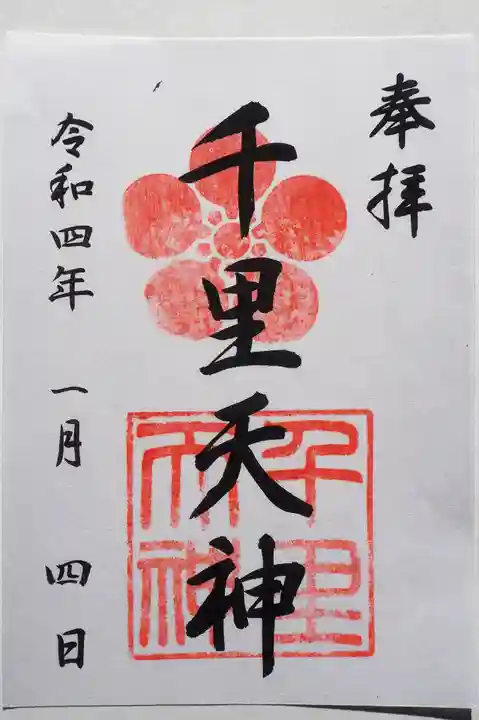 奉拝
千里天神
千里
天神
令和四年 一月 四日